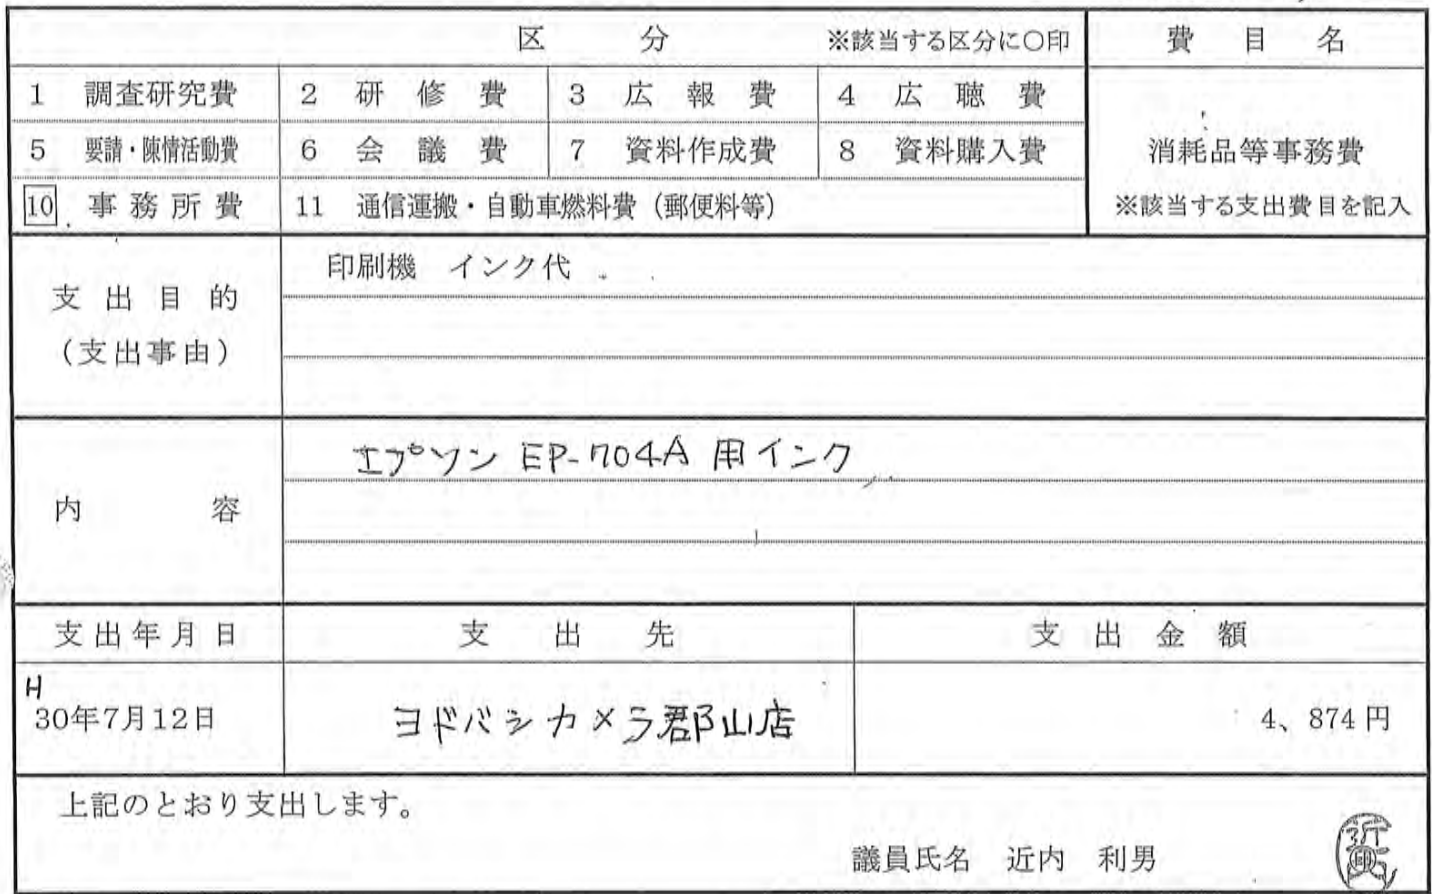 区 分 ※該当する区分に○印 費 目 名
1 調査研究費 2 研 修 費 3 広 報 費 4 広 聴 費
5 要請・陳情活動費 6 会 議 費 7 資料作成費 8 資料購入費 消耗品等事務費
10 事務所費 11 通信運搬・自動車燃料費（郵便料等） ※該当する支出費目を記入
支出目的 印刷機 インク代
（支出事由）
エプソン EP-704A 用インク
内 容
支出年月日 支 出 先 支 出 金 額
H
30年7月12日 ヨドバシカメラ郡山店 4、874円
上記のとおり支出します。
議員氏名 近内 利男